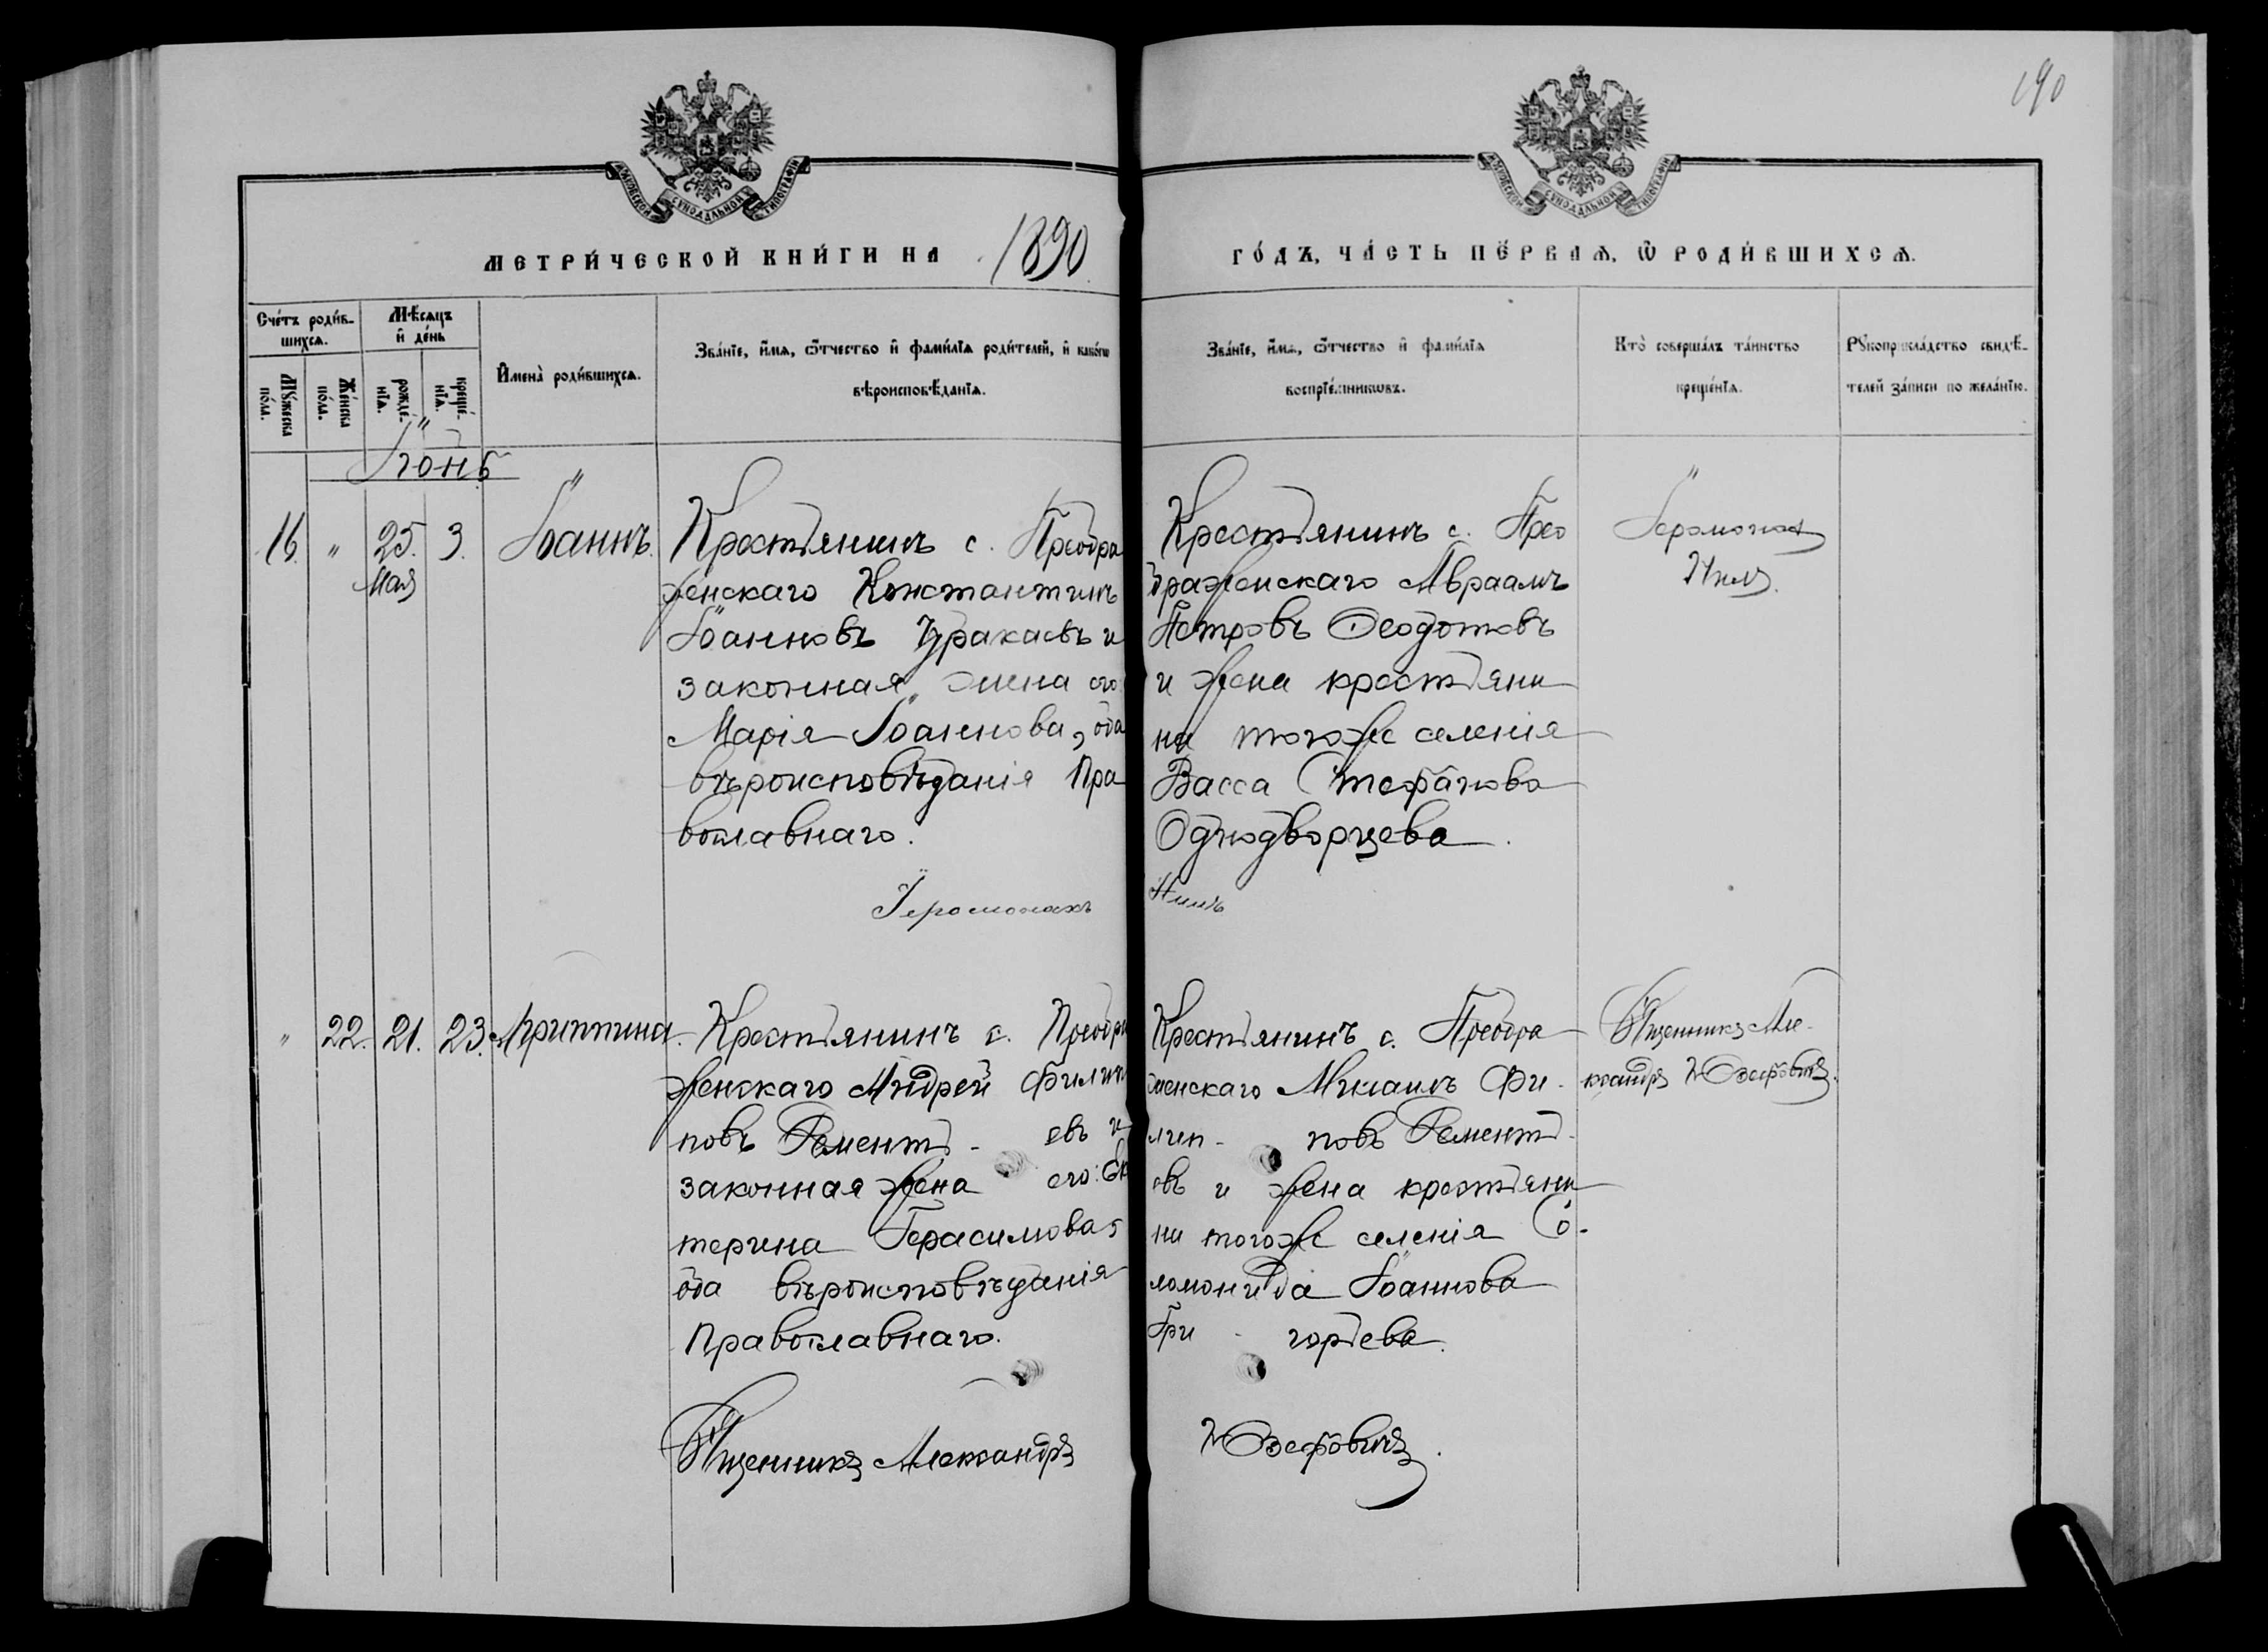 190
МОСКОВСКОЙ СѴНОДАЛЬНОЙ ТИПОГРАФІИ
МОСКОВСКОЙ СѴНОДАЛЬНОЙ ТИПОГРАФІИ
МЕТРИ́ЧЕСКОЙ КНИ́ГИ НА 1890
ГО́ДЪ, ЧА́СТЬ ПЕ́РВАѦ, Ѿ РОДИ́ВШИХСѦ.
Сче́тъ роди́в-
шихсѧ.
Мѣсѧцъ
и де́нь
Мꙋ́жеска
по́ла.
Же́нска
по́ла.
рожде́-
нїѧ.
креще́-
нїѧ.
Имена̀ роди́вшихсѧ.
Зва́нїе, и́мѧ, ѻ́тчество и фами́лїѧ роди́телей, и како́гѡ
вѣроисповѣ́данїѧ.
Зва́нїе, и́мѧ, ѻ́тчество и фами́лїѧ
воспрїе́мникѡвъ.
Кто̀ соверша́лъ та́инство
креще́нїѧ.
Рꙋкоприкла́дство свидѣ́-
телей за́писи по жела́нїю.
Іюнь
16. " 25. 3. Іоаннъ.
Мая
Крестьянинъ с. Преобра
женскаго Константинъ
Іоанновъ Чуракаевъ и
законная жена его
Марія Іоаннова, оба
вѣроисповѣданія Пра
вославнаго.
Іеромонахъ
Крестьянинъ с. Прео
браженскаго Авраамъ
Петровъ Ѳеодотовъ
и жена крестьяни
на тогоже селенія
Васса Стефанова
Однодворцева.
Нилъ
Іеромонах
Нилъ.
" 22. 21. 23. Агриппина.
Крестьянинъ с. Преобра
женскаго Андрей Филип
повъ Дементь- евъ и
законная жена его: Ек
терина Герасимова,
оба вѣроисповѣданія
Православнаго.
Священникъ Александръ
Крестьянинъ с. Преобра
женскаго Михаилъ Фи-
лип- повъ Дементь-
евъ и жена крестьяни
на тогоже селенія Со-
ломонида Іоаннова
Гри - горьева.
Юзефовичъ.
Священникъ Але-
ксандръ Юзефовичъ.